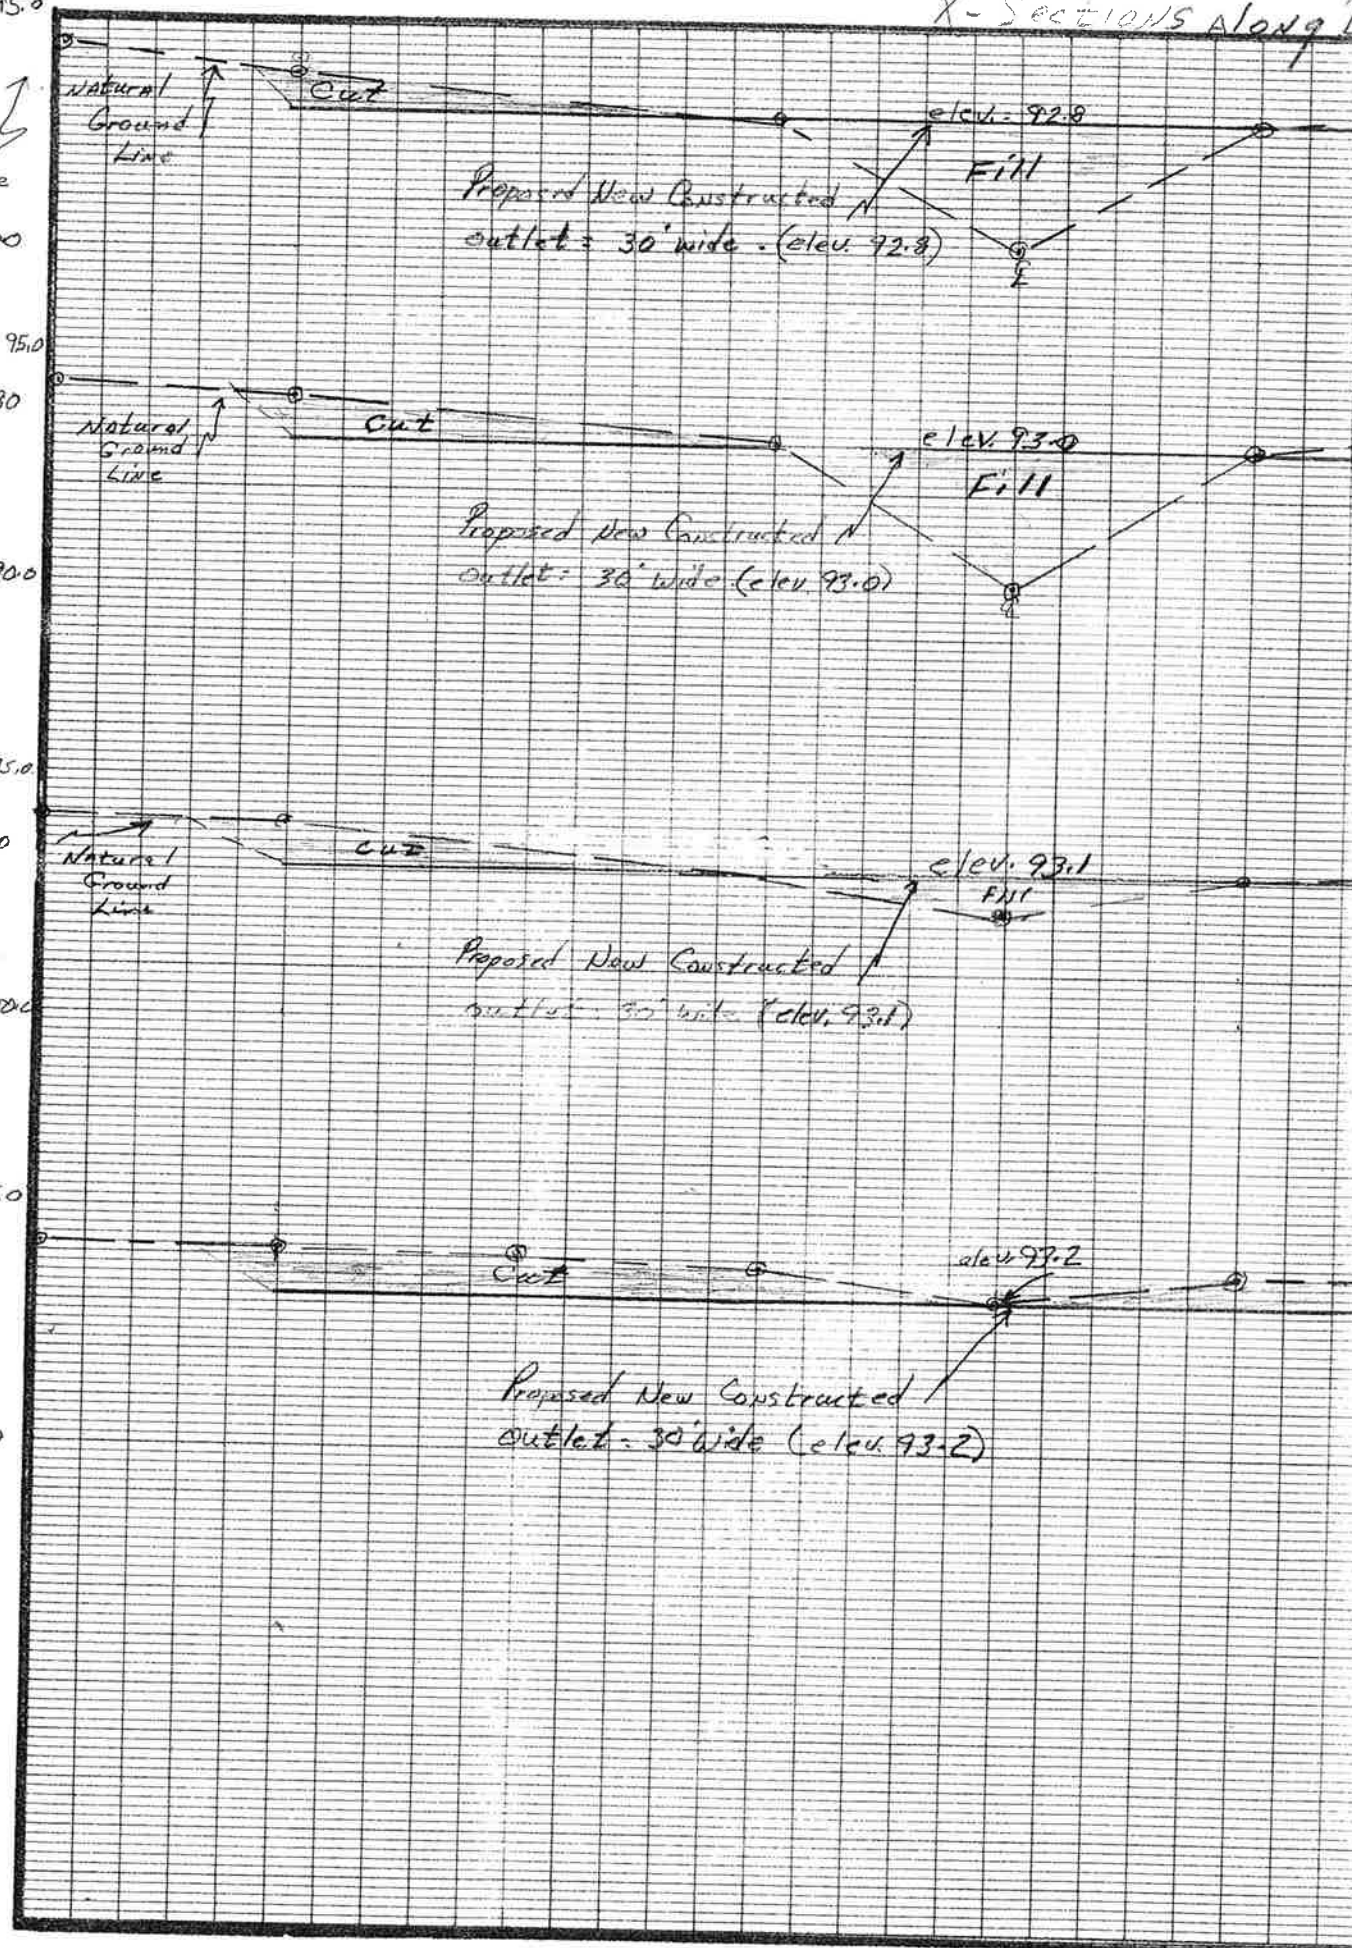 X-Sections Along
95.0
Natural
Ground
Line
Cut
elev. = 92.8
Fill
Proposed New Constructed
outlet = 30' wide. (elev. 92.8)
℄
95.0
Natural
Ground
Line
Cut
elev. 93.0
Fill
Proposed New Constructed
outlet = 30' wide (elev. 93.0)
90.0
℄
Natural
Ground
Line
Cut
elev. 93.1
Fill
Proposed New Constructed
outlet = 30' wide (elev. 93.1)
Cut
elev. 93.2
Proposed New Constructed
outlet = 30' wide (elev. 93.2)